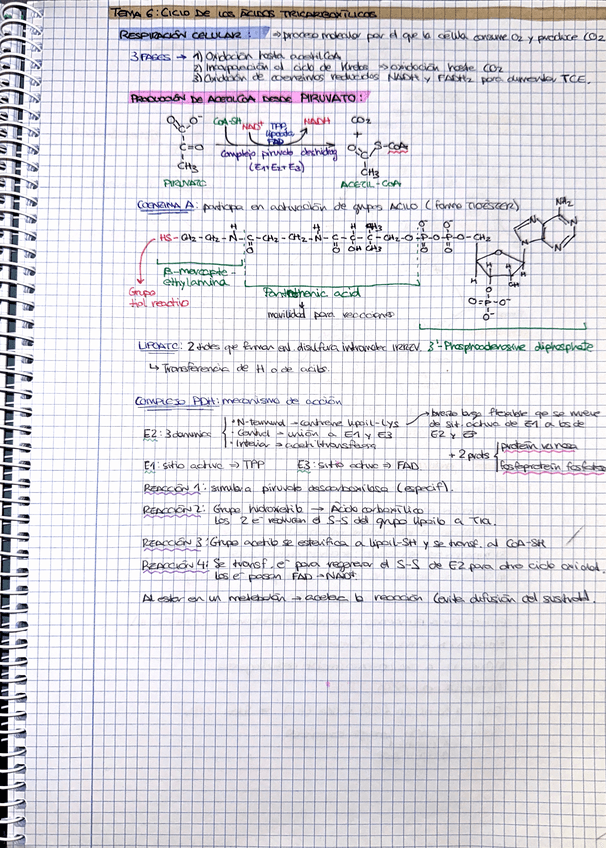 TEMA 6: CICLO DE LOS ÁCIDOS TRICARBOXÍLICOS
RESPIRACIÓN CELULAR: → proceso molecular por el que la célula consume O2 y produce CO2
3 FASES → 1) Oxidación hasta acetilCoA
2) Incorporación al ciclo de Krebs → oxidación hasta CO2
3) Oxidación de coenzimas reducidos NADH y FADH2 para TCE.
PRODUCCIÓN DE ACETILCOA DESDE PIRUVATO:
CoA-SH NAD+ TPP NADH CO2
Lipoato
FAD
+
O O- C C=O CH3
Complejo piruvato deshidrog
(E1+E2+E3)
O S-CoA C CH3
PIRUVATO
ACETIL-CoA
COENZIMA A: participa en activación de grupos ACILO (forma TIOÉSTER)
NH2
HS-CH2-CH2-N-C-CH2-CH2-N-C-C-C-CH2-O-P-O-P-O-CH2
Grupo tiol reactivo
β-mercapto-ethylamina
Pantothenic acid
movilidad para reacciones
O=P-O-
O-
LIPOATO: 2 tioles que forman en disulfuro intramolec 3'-Phosphoadenosine diphosphate
↳ Transferencia de H o de acilos.
COMPLEJO PDH: mecanismo de acción
E2: 3 dominios
· N-terminal → contiene lipoil-Lys
· Central → unión a E1 y E3
· Interior → acetiltransferasa
→ brazo largo flexible que se mueve de sit. activo de E1 a los de E2 y E3
+ 2 prots
proteín kinasa
fosfoproteín fosfatasa
E1: sitio activo ⇒ TPP E3: sitio activo ⇒ FAD.
REACCIÓN 1: similar a piruvato descarboxilasa (específ).
REACCIÓN 2: Grupo hidroxietilo → Ácido carboxílico
Los 2 e- reducen el S-S del grupo lipoilo a
REACCIÓN 3: Grupo acetilo se esterifica a lipoil-SH y se transf. al CoA-SH
REACCIÓN 4: Se transf. e- para regenerar el S-S de E2 para otro ciclo oxidad.
Los e- pasan FAD → NAD+.
Al estar en un metabolón → aceler. la reacción (evita difusión del sustrato).